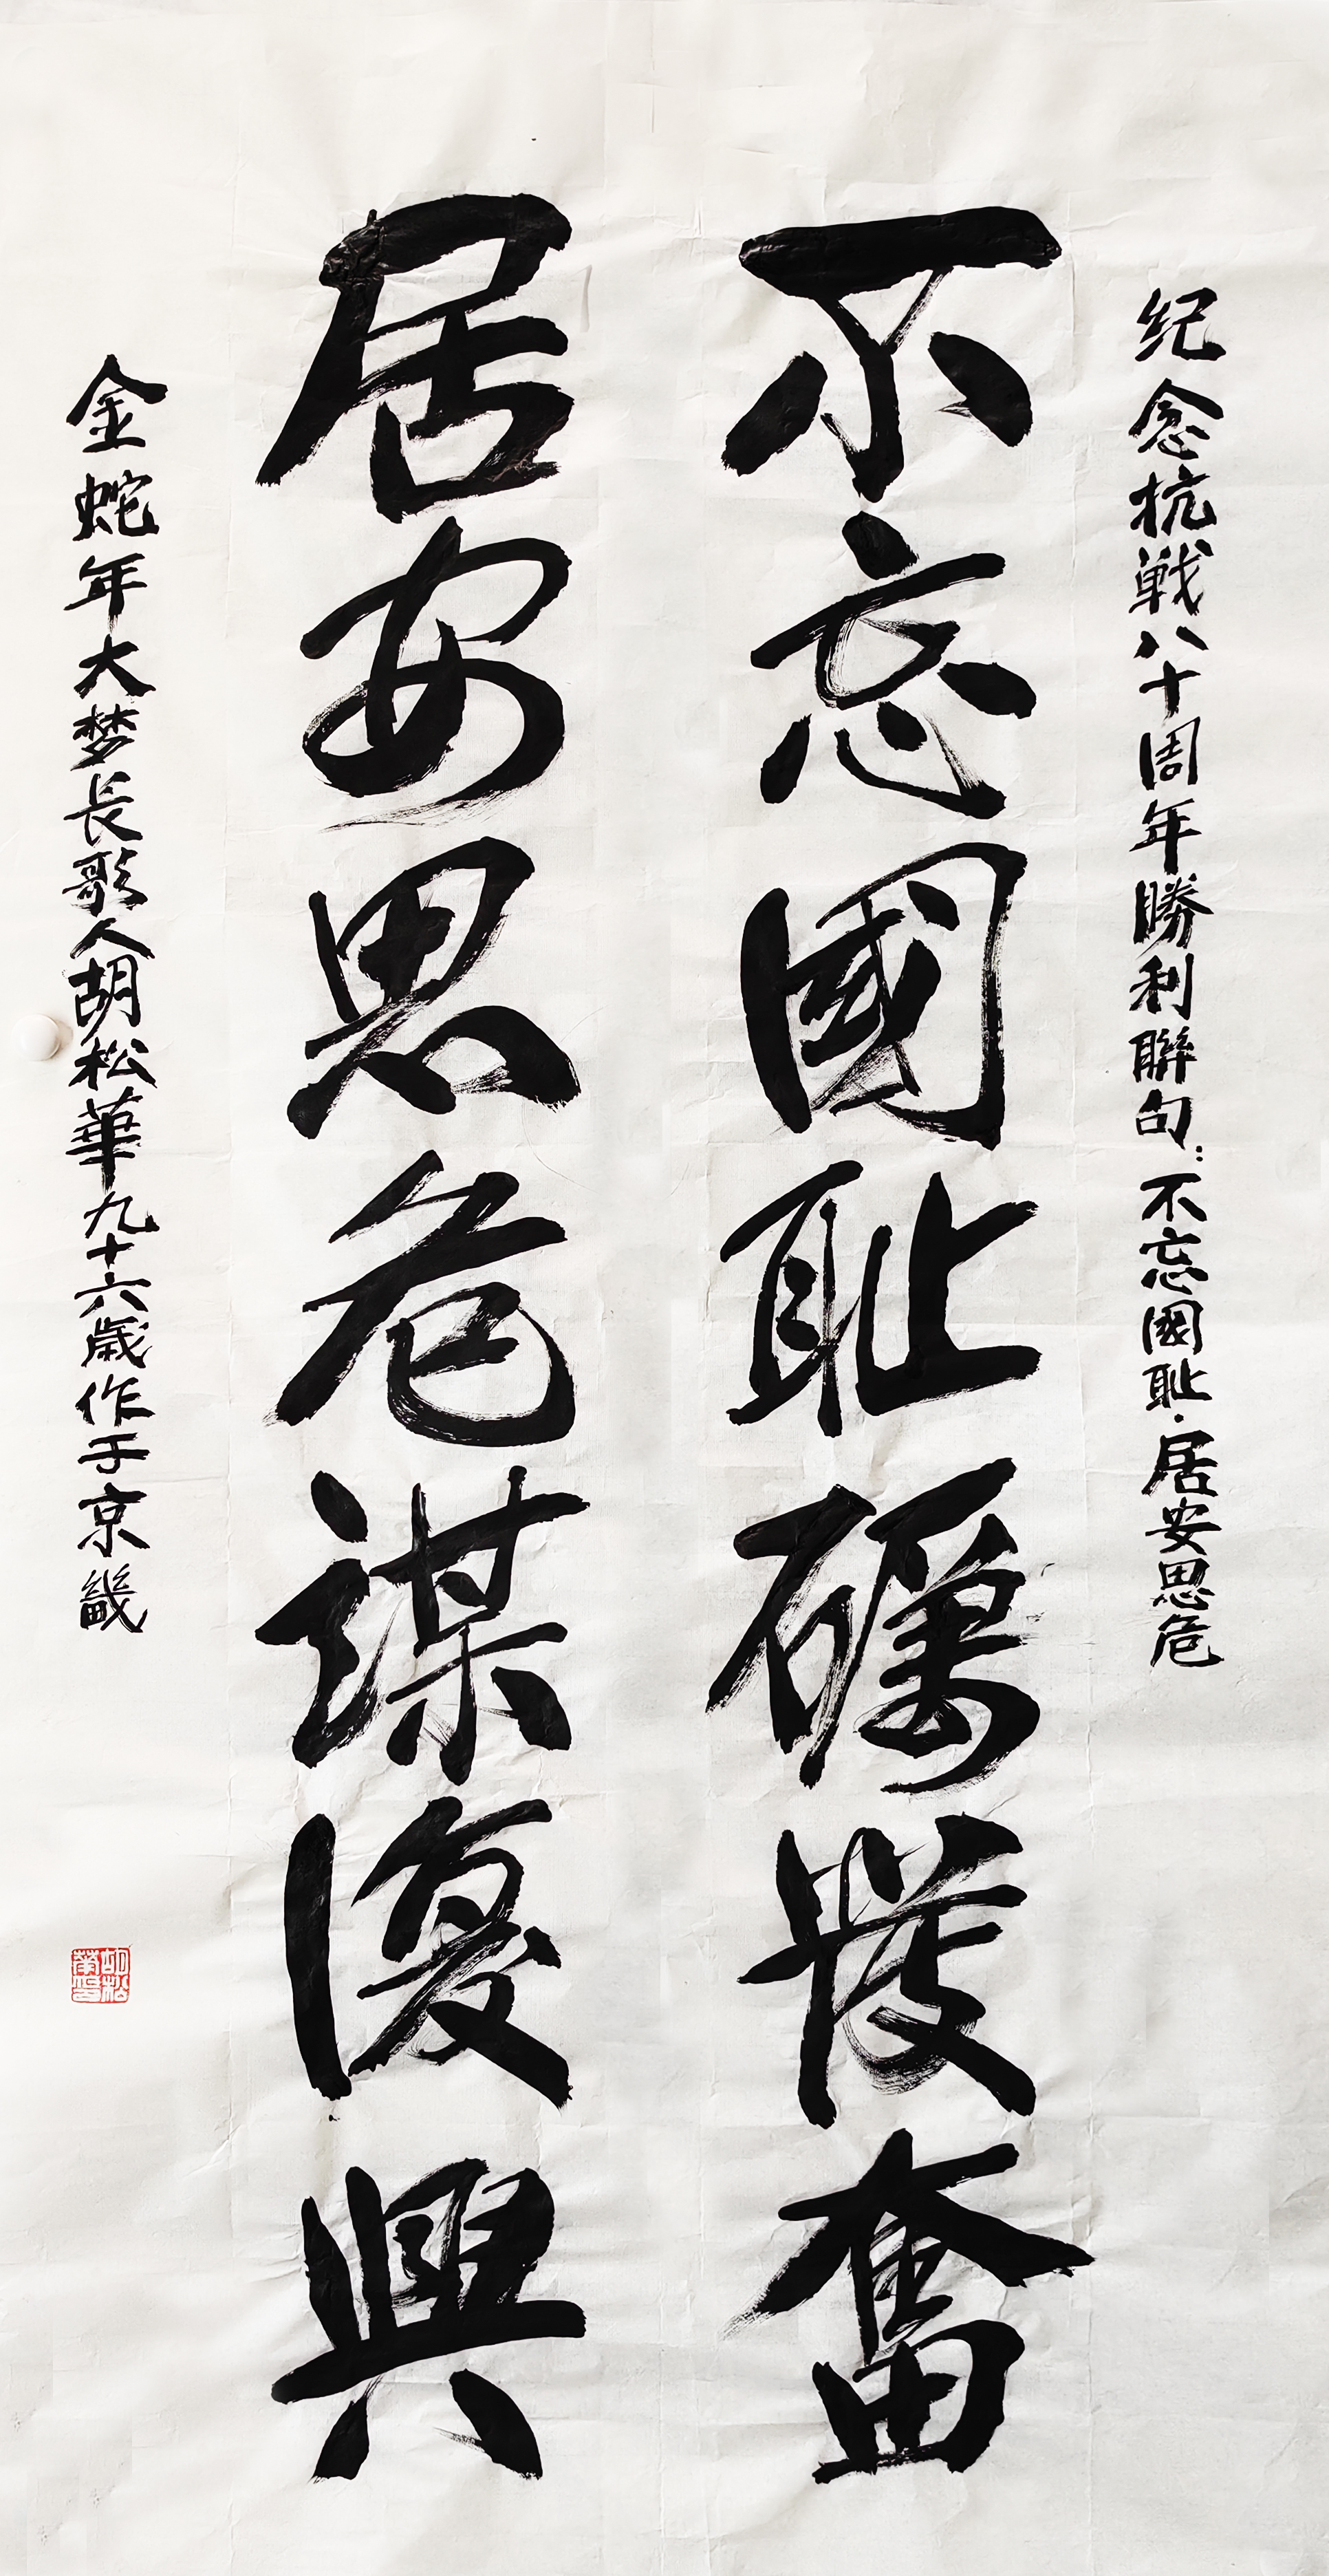 纪念抗戦八十周年勝利聯句:不忘國耻·居安思危
不忘國耻礪發奮
居安思危謀復興
金蛇年大梦长歌人胡松華九十六歲作于京畿
胡松華印